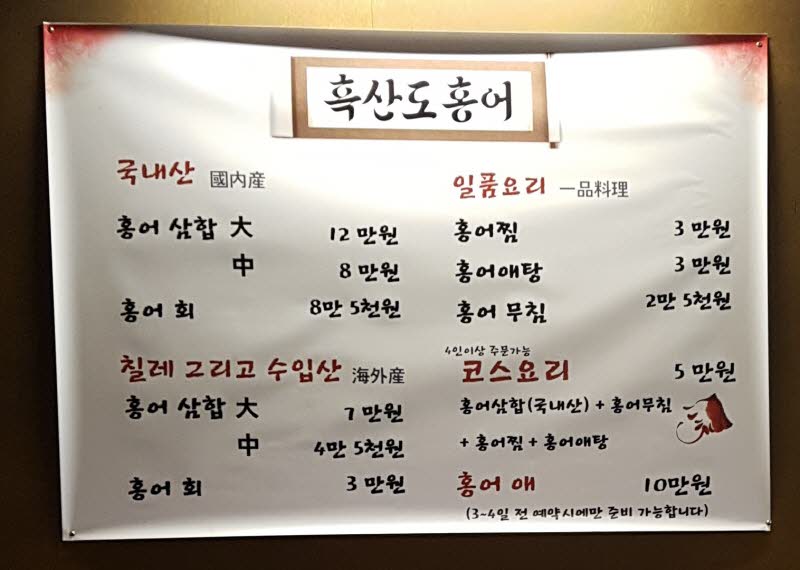 흑산도홍어
국내산 國內産
홍어 삼합 大 12 만원
中 8 만원
홍어 회 8만 5천원
칠레 그리고 수입산 海外産
홍어 삼합 大 7 만원
中 4만 5천원
홍어 회 3 만원
일품요리 一品料理
홍어찜 3 만원
홍어애탕 3 만원
홍어 무침 2만 5천원
4인이상 주문가능
코스요리 5 만원
홍어삼합(국내산) + 홍어무침
+ 홍어찜 + 홍어애탕
홍어 애 10만원
(3~4일 전 예약시에만 준비 가능합니다)